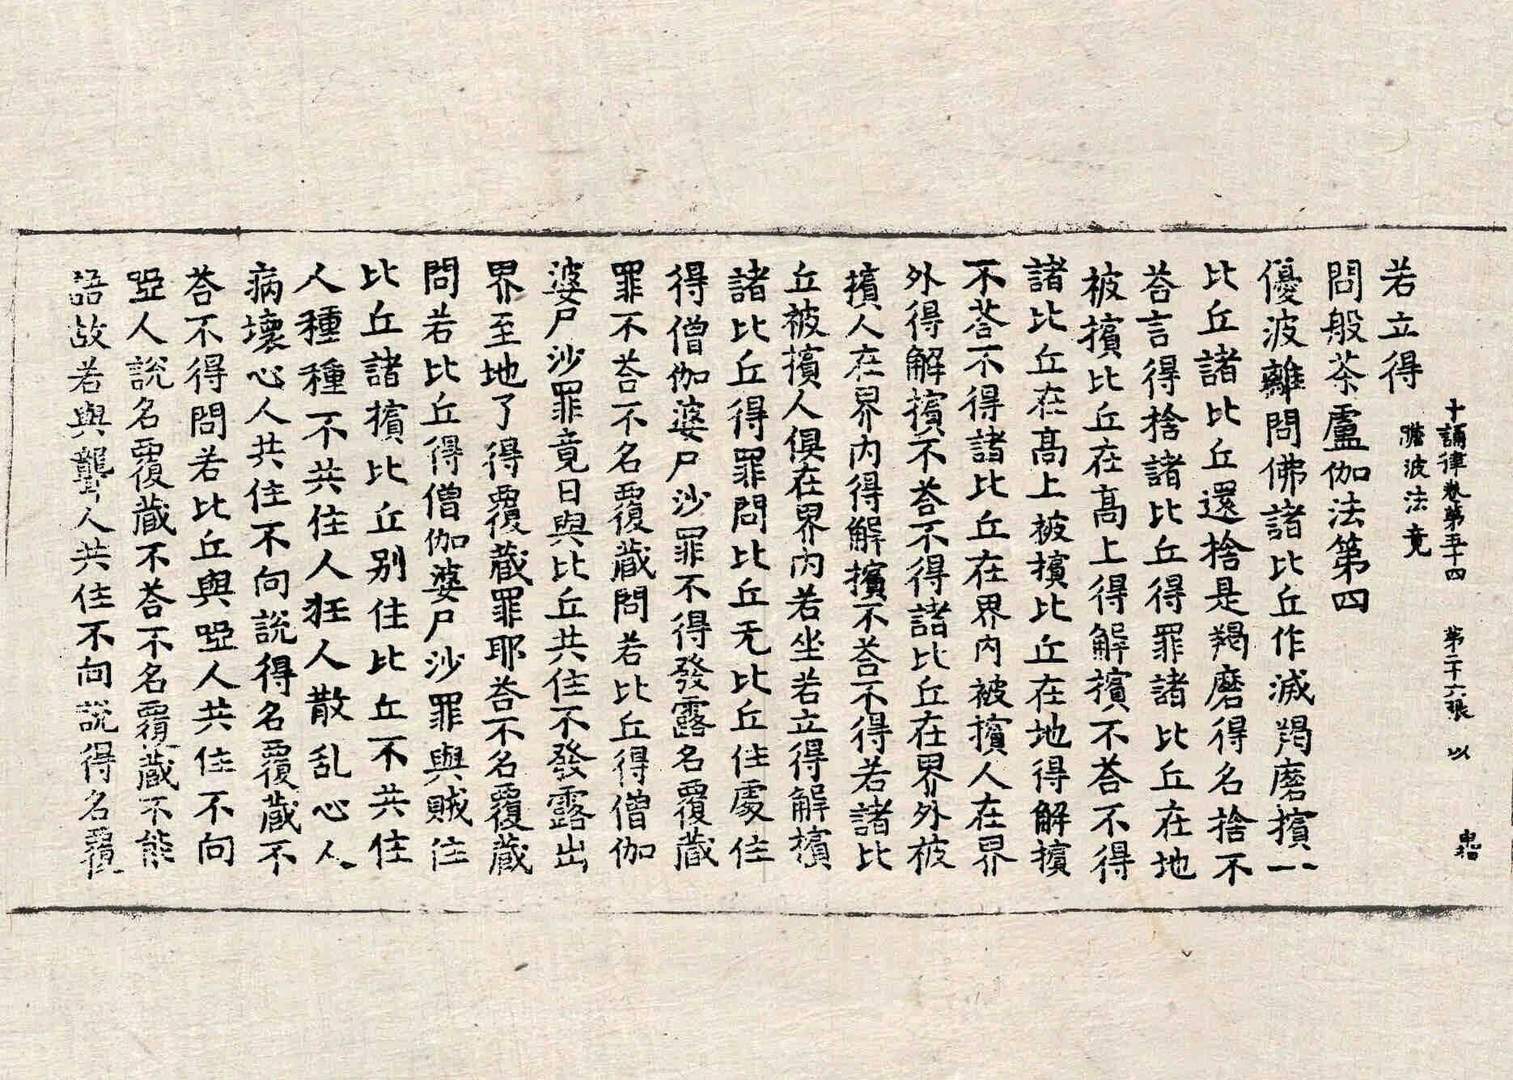 十誦律卷第五十四　第二十六張　以　忠智
若立得　瞻波法竟
問般茶盧伽法第四
優波離問佛諸比丘作滅羯磨擯一
比丘諸比丘還捨是羯磨得名捨不
荅言得捨諸比丘得罪諸比丘在地
被擯比丘在高上得解擯不荅不得
諸比丘在高上被擯比丘在地得解擯
不荅不得諸比丘在界內被擯人在界
外得解擯不荅不得諸比丘在界外被
擯人在界內得解擯不荅不得若諸比
丘被擯人俱在界內若坐若立得解擯
諸比丘得罪問比丘无比丘住處住
得僧伽婆尸沙罪不得發露名覆藏
罪不荅不名覆藏問若比丘得僧伽
婆尸沙罪竟日與比丘共住不發露出
界至地了得覆藏罪耶荅不名覆藏
問若比丘得僧伽婆尸沙罪與賊住
比丘諸擯比丘別住比丘不共住
人種種不共住人狂人散乱心人
病壞心人共住不向說得名覆藏不
荅不得問若比丘與啞人共住不向
啞人說名覆藏不荅不名覆藏不能
語故若與聾人共住不向說得名覆